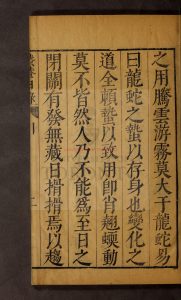 之用騰雲游霧莫大于龍蛇易
曰龍蛇之蟄以存身也變化之
道全賴蟄以致用即肖翹蝡動
莫不皆然人乃不能爲至日之
閉關有發無藏日揹揹焉以趨